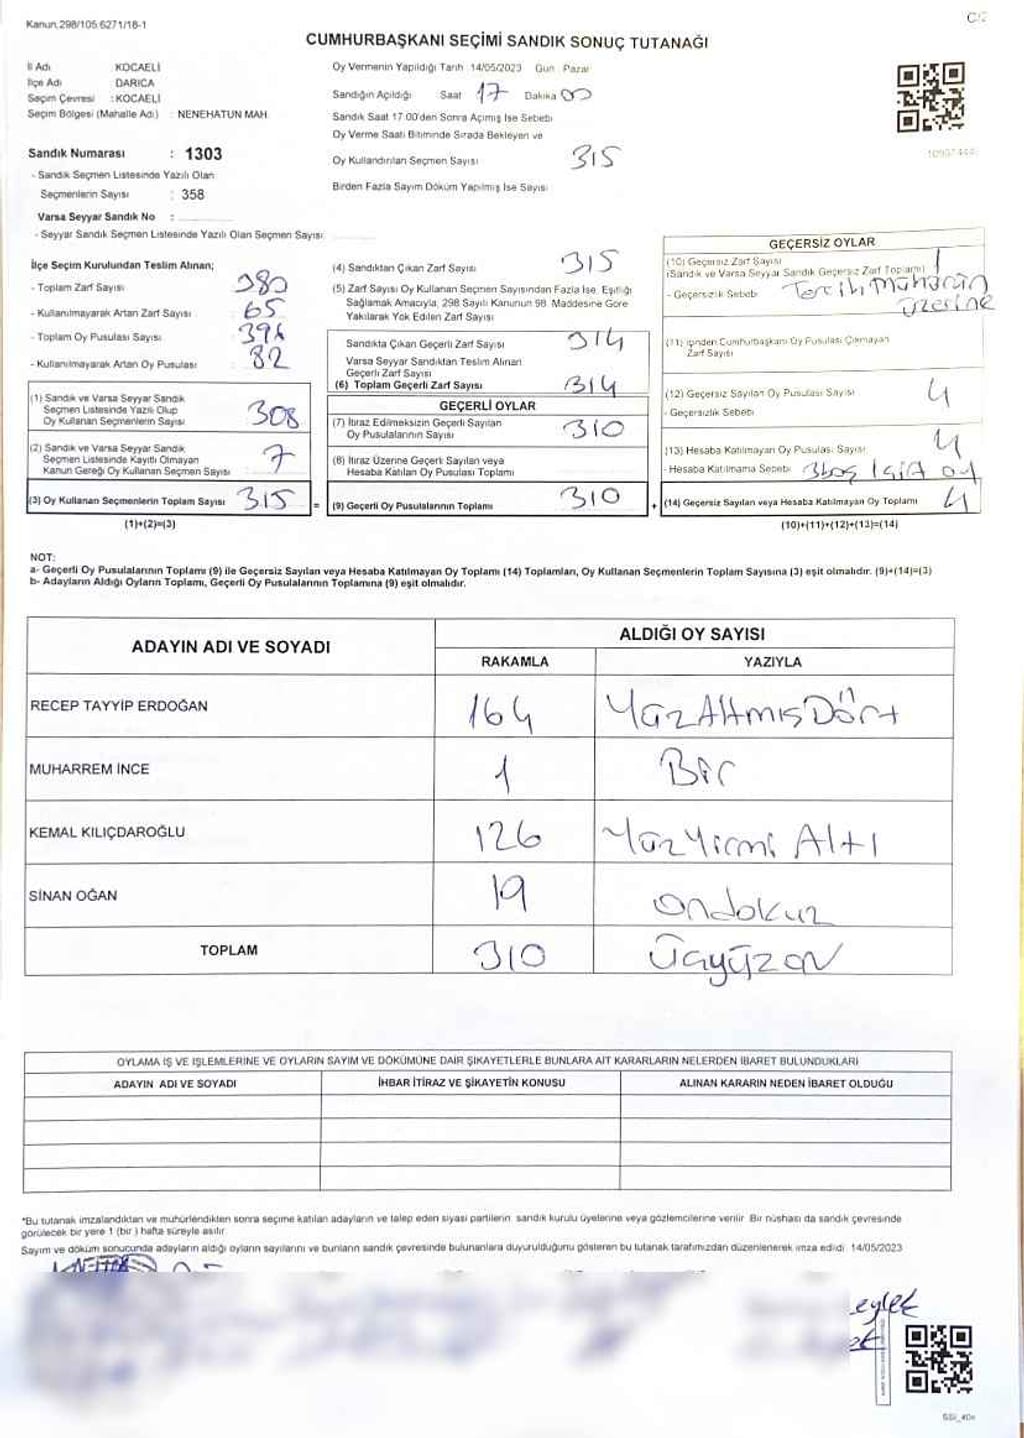 Kanun,298/105,6271/18-1
CUMHURBAŞKANI SEÇİMİ SANDIK SONUÇ TUTANAĞI
İl Adı KOCAELİ
İlçe Adı DARICA
Seçim Çevresi : KOCAELİ
Seçim Bölgesi (Mahalle Adı) : NENEHATUN MAH
Sandık Numarası : 1303
- Sandık Seçmen Listesinde Yazılı Olan
Seçmenlerin Sayısı : 358
Varsa Seyyar Sandık No :
- Seyyar Sandık Seçmen Listesinde Yazılı Olan Seçmen Sayısı:
Oy Vermenin Yapıldığı Tarih 14/05/2023 Gün Pazar
Sandığın Açıldığı Saat 17 Dakika 00
Sandık Saat 17:00'den Sonra Açımış İse Sebebi
Oy Verme Saati Bitiminde Sırada Bekleyen ve
Oy Kullandırılan Seçmen Sayısı 315
Birden Fazla Sayım Döküm Yapılmış İse Sayısı
İlçe Seçim Kurulundan Teslim Alınan;
- Toplam Zarf Sayısı 380
- Kullanılmayarak Artan Zarf Sayısı 65
- Toplam Oy Pusulası Sayısı
- Kullanılmayarak Artan Oy Pusulası 82
(1) Sandık ve Varsa Seyyar Sandık
Seçmen Listesinde Yazılı Olup
Oy Kullanan Seçmenlerin Sayısı 308
(2) Sandık ve Varsa Seyyar Sandık
Seçmen Listesinde Kayıtlı Olmayan
Kanun Gereği Oy Kullanan Seçmen Sayısı 7
(3) Oy Kullanan Seçmenlerin Toplam Sayısı 315 =
(1)+(2)=(3)
(4) Sandıktan Çıkan Zarf Sayısı 315
(5) Zarf Sayısı Oy Kullanan Seçmen Sayısından Fazla İse, Eşitliği
Sağlamak Amacıyla, 298 Sayılı Kanunun 98. Maddesine Göre
Yakılarak Yok Edilen Zarf Sayısı
Sandıkta Çıkan Geçerli Zarf Sayısı 314
Varsa Seyyar Sandıktan Teslim Alınan
Geçerli Zarf Sayısı
(6) Toplam Geçerli Zarf Sayısı 314
GEÇERLİ OYLAR
(7) İtiraz Edilmeksizin Geçerli Sayılan
Oy Pusulalarının Sayısı 310
(8) İtiraz Üzerine Geçerli Sayılan veya
Hesaba Katılan Oy Pusulası Toplamı
(9) Geçerli Oy Pusulalarının Toplamı 310 +
GEÇERSİZ OYLAR
(10) Geçersiz Zarf Sayısı 1
(Sandık ve Varsa Seyyar Sandık Geçersiz Zarf Toplamı)
- Geçersizlik Sebebi Tercih Mührünün
üzerine
(11) İçinden Cumhurbaşkanı Oy Pusulası Çıkmayan
Zarf Sayısı
(12) Geçersiz Sayılan Oy Pusulası Sayısı 4
- Geçersizlik Sebebi
(13) Hesaba Katılmayan Oy Pusulası Sayısı 4
- Hesaba Katılmama Sebebi 3boş 1çift oy
(14) Geçersiz Sayılan veya Hesaba Katılmayan Oy Toplamı 4
(10)+(11)+(12)+(13)=(14)
NOT:
a- Geçerli Oy Pusulalarının Toplamı (9) ile Geçersiz Sayılan veya Hesaba Katılmayan Oy Toplamı (14) Toplamları, Oy Kullanan Seçmenlerin Toplam Sayısına (3) eşit olmalıdır. (9)+(14)=(3)
b- Adayların Aldığı Oyların Toplamı, Geçerli Oy Pusulalarının Toplamına (9) eşit olmalıdır.
ADAYIN ADI VE SOYADI ALDIĞI OY SAYISI
RAKAMLA YAZIYLA
RECEP TAYYİP ERDOĞAN 164 YüzAltmışDört
MUHARREM İNCE 1 Bir
KEMAL KILIÇDAROĞLU 126 YüzYirmi Altı
SİNAN OĞAN 19 ondokuz
TOPLAM 310 Üçyüzon
OYLAMA İŞ VE İŞLEMLERİNE VE OYLARIN SAYIM VE DÖKÜMÜNE DAİR ŞİKAYETLERLE BUNLARA AİT KARARLARIN NELERDEN İBARET BULUNDUKLARI
ADAYIN ADI VE SOYADI İHBAR İTİRAZ VE ŞİKAYETİN KONUSU ALINAN KARARIN NEDEN İBARET OLDUĞU
*Bu tutanak imzalandıktan ve mühürlendikten sonra seçime katılan adayların ve talep eden siyasi partilerin sandık kurulu üyelerine veya gözlemcilerine verilir. Bir nüshası da sandık çevresinde
görülecek bir yere 1 (bir) hafta süreyle asılır.
Sayım ve döküm sonucunda adayların aldığı oyların sayılarını ve bunların sandık çevresinde bulunanlara duyurulduğunu gösteren bu tutanak tarafımızdan düzenlenerek imza edildi. 14/05/2023